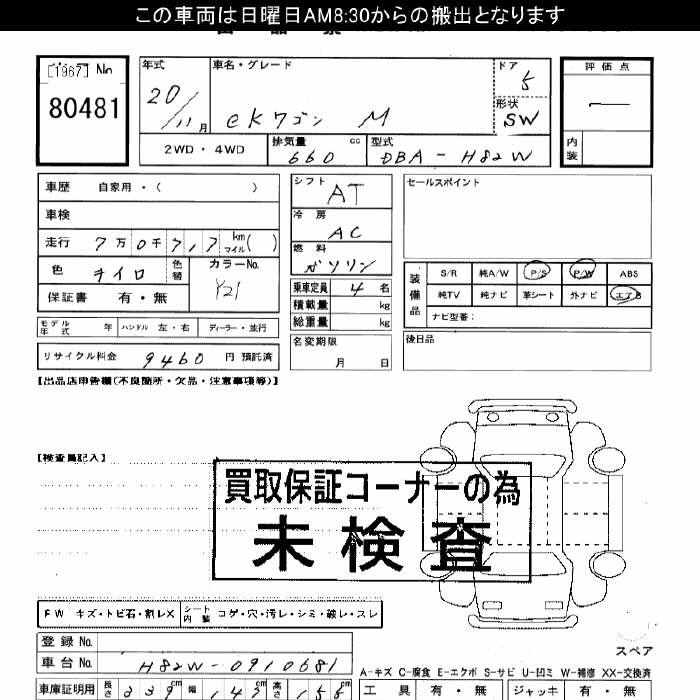 この車両は日曜日AM8:30からの搬出となります
[1967] No
80481
年式
20/11月
車名・グレード
eKワゴン M
ドア
5
形状
SW
評価点
内装
2WD・4WD
排気量 660 cc
型式 DBA-H82W
車歴 自家用・( )
車検
走行 7万0千717 km マイル( )
色 キイロ 色替
カラーNo. Y21
保証書 有・無
シフト AT
冷房 AC
燃料 ガソリン
乗車定員 4名
積載量 kg
総重量 kg
名変期限
月 日
セールスポイント
装備品
S/R 純A/W P/S P/W ABS
純TV 純ナビ 革シート 外ナビ エアB
ナビ型番:
後日品
モデル年式 年 ハンドル 左・右 ディーラー・並行
リサイクル料金 9460 円 預託済
【出品店申告欄(不良箇所・欠品・注意事項等)】
【検査員記入】
買取保証コーナーの為
未検査
FW キズ・トビ石・割レX シート内装 コゲ・穴・汚レ・シミ・破レ・スレ
登録No.
車台No. H82W-0910681
スペア
A-キズ C-腐食 E-エクボ S-サビ U-凹ミ W-補修 XX-交換済
車庫証明用 長さ 339cm 幅 147cm 高さ 155cm
工具 有・無 ジャッキ 有・無